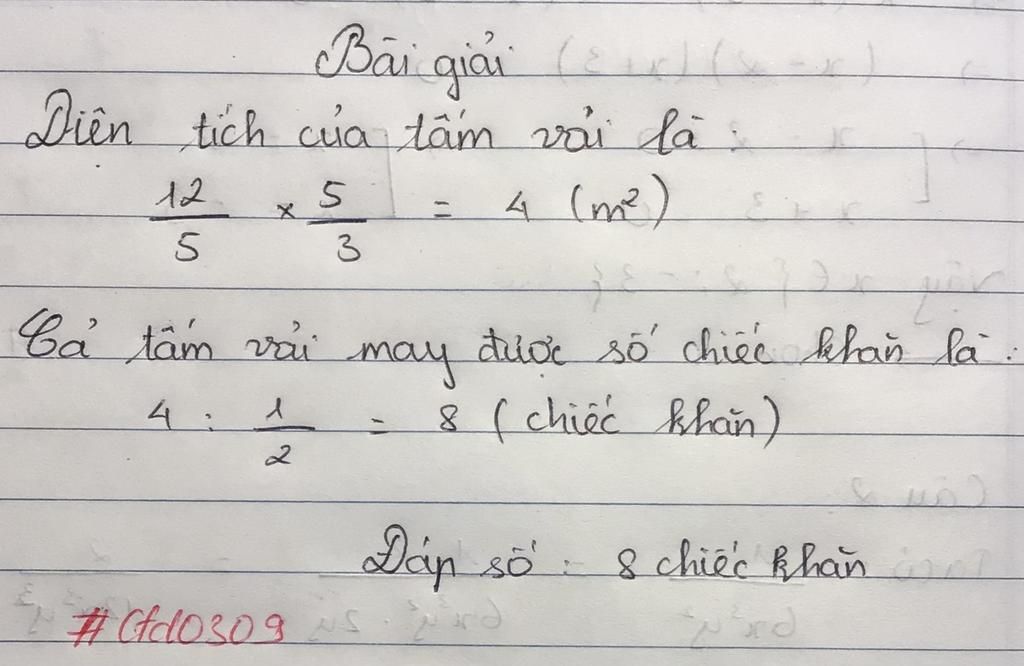 Bài giải
Diện tích của tấm vải là:
12/5 × 5/3 = 4 (m²)
Cả tấm vải may được số chiếc khăn là:
4 : 1/2 = 8 (chiếc khăn)
Đáp số: 8 chiếc khăn
#Ctd0309